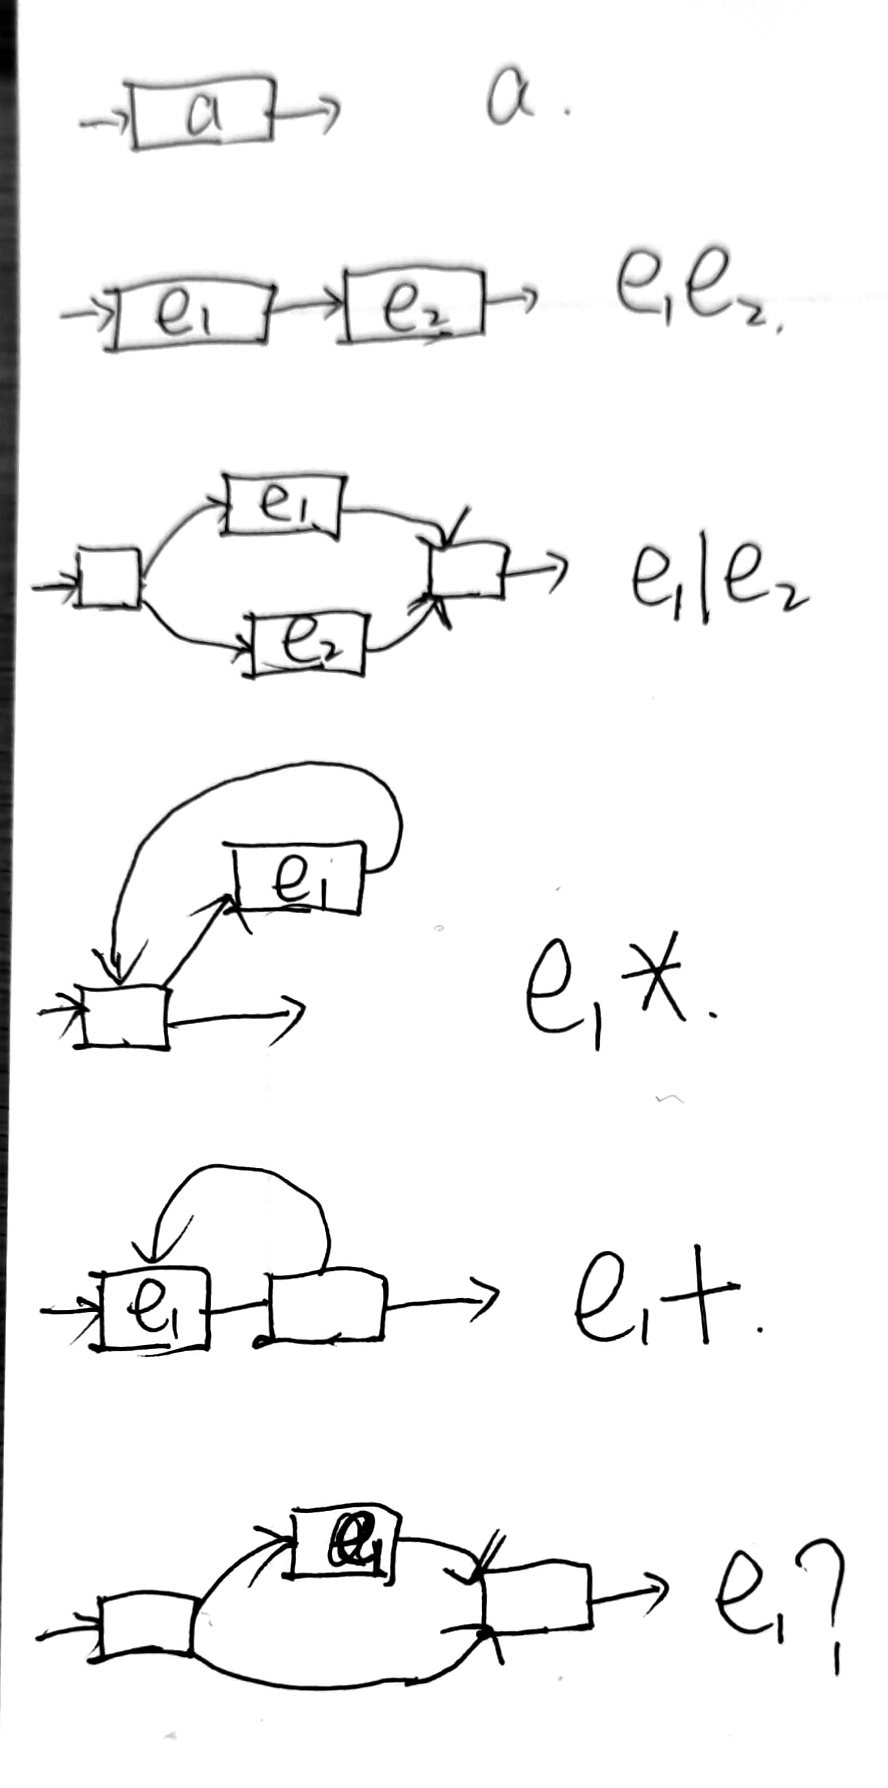 a a.
e₁ e₂ e₁e₂.
e₁
e₂ e₁|e₂
e₁
e₁*.
e₁ e₁+.
e₁ e₁?